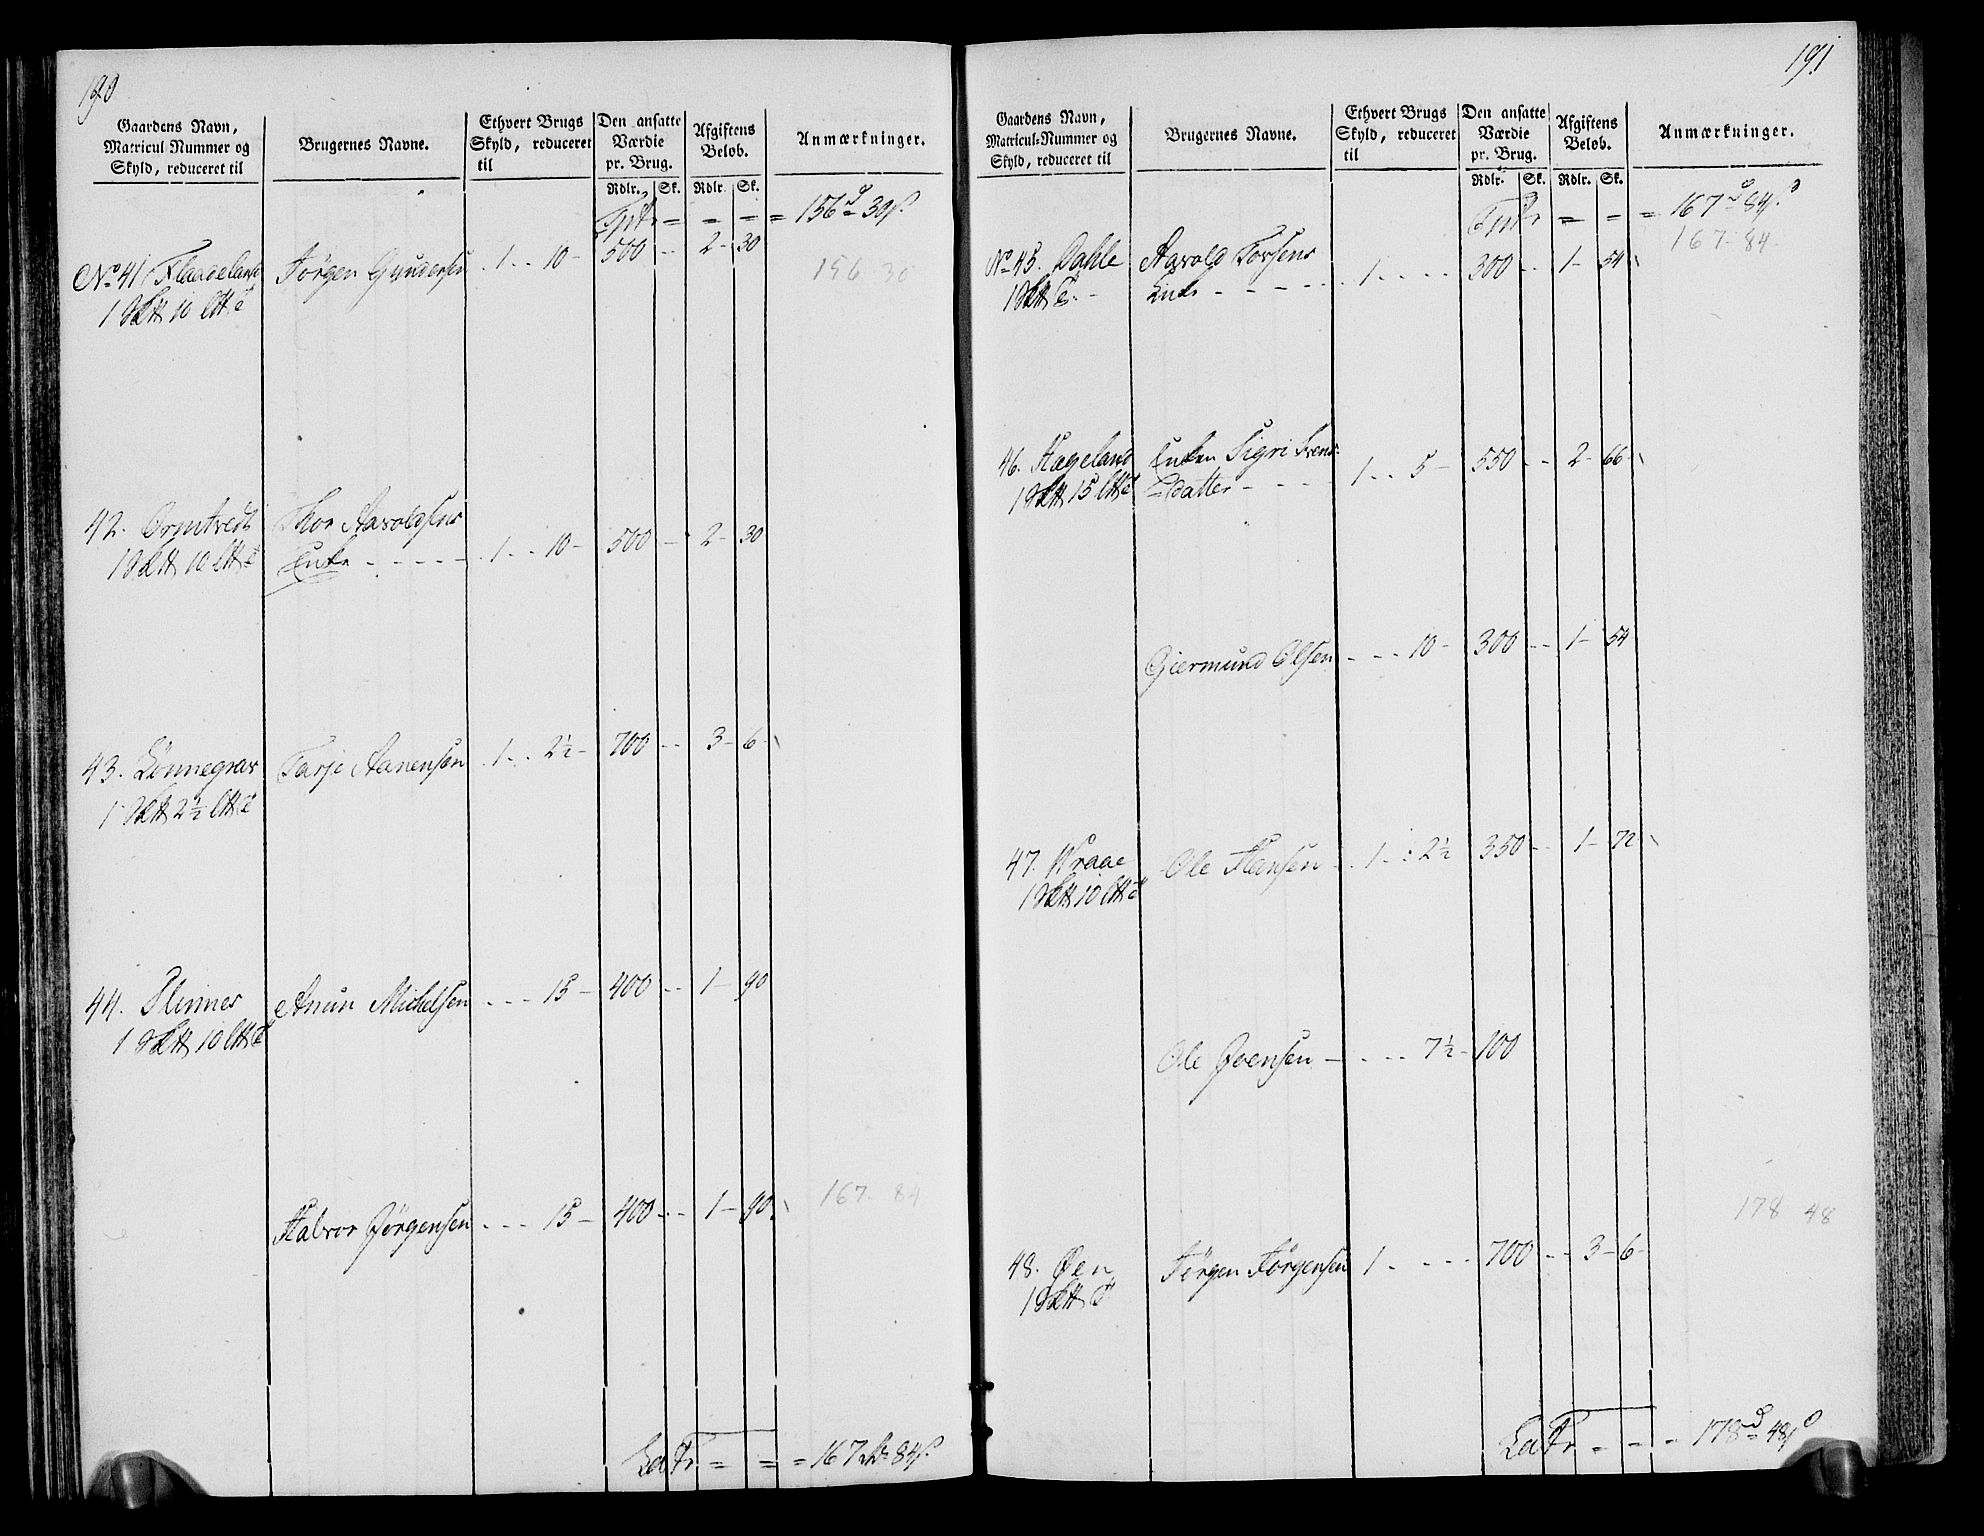 190
Gaardens Navn,
Matricul Nummer og
Skyld, reduceret til
Brugernes Navne.
Ethvert Brugs
Skyld, reduceret
til
Den ansatte
Værdie
pr. Brug.
Afgiftens
Beløb.
Anmærkninger.
Rdlr. Sk. Rdlr. Sk.
= = = = 156 30
No 41 Flaadeland Jørgen Gundersen 1 10 500 2 30
156 30
1 10
42. Ormtvedt Thor Aavoldsens
1 10 Enke 1 10 500 2 30
43. Lønnegrav Tarje Aanensen 1 2½ 700 3 6
1 2½
44. Slimes Anun Michelsen 15 400 1 90
1 10
167 84
Halvor Jørgensen 15 400 1 90
Lat = = = 167 84
191
Gaardens Navn,
Matricul-Nummer og
Skyld, reduceret til
Brugernes Navne.
Ethvert Brugs
Skyld, reduceret
til
Den ansatte
Værdie
pr. Brug.
Afgiftens
Beløb.
Anmærkninger.
Rdlr. Sk. Rdlr. Sk.
= = = 167 84
167 84
No 45. Dahle Aavold
1 Enke 1 300 1 54
46. Hageland Enken Sigri Svens-
1 15 Datter 1 5 550 2 66
Giermund Olsen 10 300 1 54
47. Wraae Ole Hansen 1 2½ 350 1 72
1 10
Ole Joensen 7½ 100
178 48
48. Øen Jørgen Jørgensen 1 700 3 6
1
Lat = = = 178 48